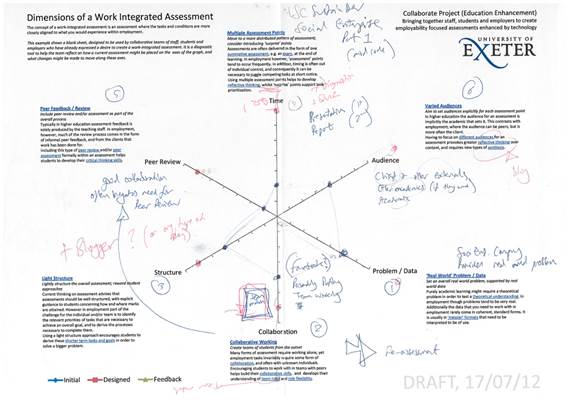 Dimensions of a Work Integrated Assessment
The concept of a work-integrated assessment is an assessment where the tasks and conditions are more
closely aligned to what you would experience within employment.
This example shows a blank sheet, designed to be used by collaborative teams of staff, students and
employers who have already expressed a desire to create a work-integrated assessment. It is a diagnostic
tool to help the team reflect on how a current assessment might be placed on the axes of the graph, and
what changes might be made to move along these axes.
Social Enterprise
Part 1
Collaborate Project (Education Enhancement)
Bringing together staff, students and employers to create
employability focused assessments enhanced by technology
UNIVERSITY OF
EXETER
Multiple Assessment Points
Move to a more distributed pattern of assessment;
consider introducing 'surprise' points
Assessments are often delivered in the form of one
summative assessment, e.g. an exam or essay, at the end of
learning. In employment however, 'assessment' points
tend to occur frequently. In addition, timing is often out
of individual control, and consequently it can be
necessary to juggle competing tasks at short notice.
Using multiple assessment points helps to develop
reflective thinking, whilst 'surprise' points support task
prioritisation.
Time
Presentation
Report
5
6
Peer Feedback / Review
Include peer review and/or assessment as part of the
overall process
Typically in higher education assessment feedback is
solely produced by the teaching staff. In employment,
however, much of the review process comes in the form
of informal peer feedback, and from the clients that
work has been done for.
Including this type of peer review and/or peer
assessment formally within an assessment helps
students to develop their critical thinking skills.
Varied Audiences
Aim to set audiences explicitly for each assessment point
In higher education the audience for an assessment is
implicitly the academic that sets it. This contrasts with
employment, where the audience can be peers, but is
more often the client.
Having to focus on different audiences for an
assessment provides greater reflective thinking over
content, and requires new types of synthesis.
blog
Peer Review
Audience
good collaboration
often negates need for
Peer Review
Client + other externals
Other academics (if they are
academic
+ Blogger ?
Structure
Problem / Data
3
1
Light Structure
Lightly structure the overall assessment; reward student
approaches
Current thinking on assessment advises that
assessments should be well-structured, with explicit
guidance to students concerning how and where marks
are attained. However in employment part of the
challenge for the individual and/or team is to identify
the relevant priorities of tasks that are necessary to
achieve an overall goal, and to derive the processes
necessary to complete them.
Using a light structure approach encourages students to
derive these shorter term tasks and goals in order to
solve a bigger problem.
'Real World' Problem / Data
Set an overall real world problem, supported by real
world data
Purely academic learning might require a theoretical
problem in order to test a theoretical understanding. In
employment though problems tend to be very real.
Additionally the data that you need to work with in
employment rarely come in coherent, standard forms. It
is usually in 'messier' formats that need to be
interpreted to be of use.
Collaboration
2
Collaborative Working
Create teams of students from the outset
Many forms of assessment require working alone; yet
employment tasks invariably require some form of
collaboration, and often with unknown individuals.
Encouraging students to work in teams with peers
helps build their collaborative skills, and develops their
understanding of team roles and role flexibility.
Pre-assessment
Initial Designed Feedback
DRAFT, 17/07/12